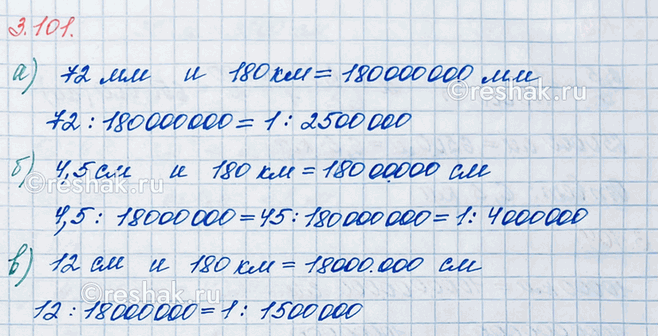 3.101.
а) 72 мм и 180 км = 180000000 мм
72 : 180000000 = 1 : 2500000
б) 4,5 см и 180 км = 18000000 см
4,5 : 18000000 = 45 : 180000000 = 1 : 4000000
в) 12 см и 180 км = 18000.000 см
12 : 18000000 = 1 : 1500000
©reshak.ru
©reshak.ru
©reshak.ru